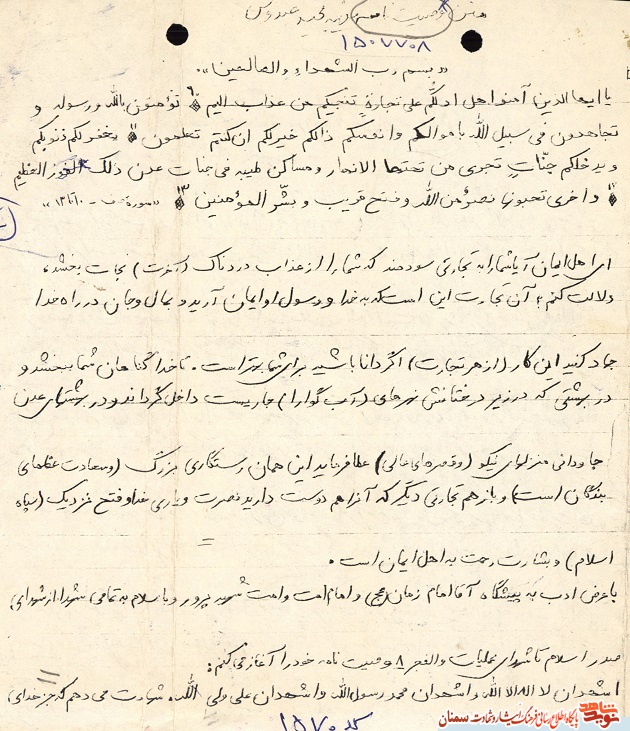 متن وصیت نامه شهید مجید عبدوس
۱۵۰۷۷۰۸
«بسم رب الشهداء والصالحین».
یا ایها الذین آمنوا هل ادلکم علی تجارةٍ تنجیکم من عذاب الیم ۱۰ تؤمنون بالله و رسوله و
تجاهدون فی سبیل الله باموالکم وانفسکم ذالکم خیرلکم ان کنتم تعلمون ۱۱ یغفرلکم ذنوبکم
ویدخلکم جنّاتٍ تجری من تحتها الانهار ومساکن طیبه فی جنات عدن ذلک الفوز العظیم
۱۲ واخری تحبونها نصرٌ من الله وفتح قریب و بشّر المؤمنین ۱۳ «سوره صف - ۱۰ تا ۱۳»
ای اهل ایمان آیا شما را به تجارتی سودمند که شما را از عذاب دردناک (آخرت) نجات بخشد،
دلالت کنم؛ آن تجارت این است که به خدا و رسول او ایمان آرید و بمال وجان در راه خدا
جهاد کنید این کار (از هر تجارت) اگر دانا باشید برای شما بهتر است. تا خدا گناهان شما ببخشد و
در بهشتی که در زیر درختانش نهرهای (آب گوارا) جاریست داخل گرداند و در بهشتهای عدن
جاودانی منزلهای نیکو (وقصرهای عالی) عطا فرماید این همان رستگاری بزرگ (وسعادت عظمای
بندگان است) و باز هم تجارتی دیگر که آنرا هم دوست دارید نصرت و یاری خدا و فتح نزدیک (سپاه
اسلام) و بشارت رحمت به اهل ایمان است.
با عرض ادب به پیشگاه آقا امام زمان (عج) و امام امت و امت شهید پرور و با سلام به تمامی شهدا از شهدای
صدر اسلام تا شهدای عملیات والفجر ۸ وصیت نامه خود را آغاز می کنم:
اشهدان لا اله الا الله واشهدان محمد رسول الله واشهدان علی ولی الله. شهادت می دهم که جز خدای
کد ۱۵۷۰
نوید شاهد پایگاه اطلاع رسانی فرهنگ ایثار و شهادت سمنان